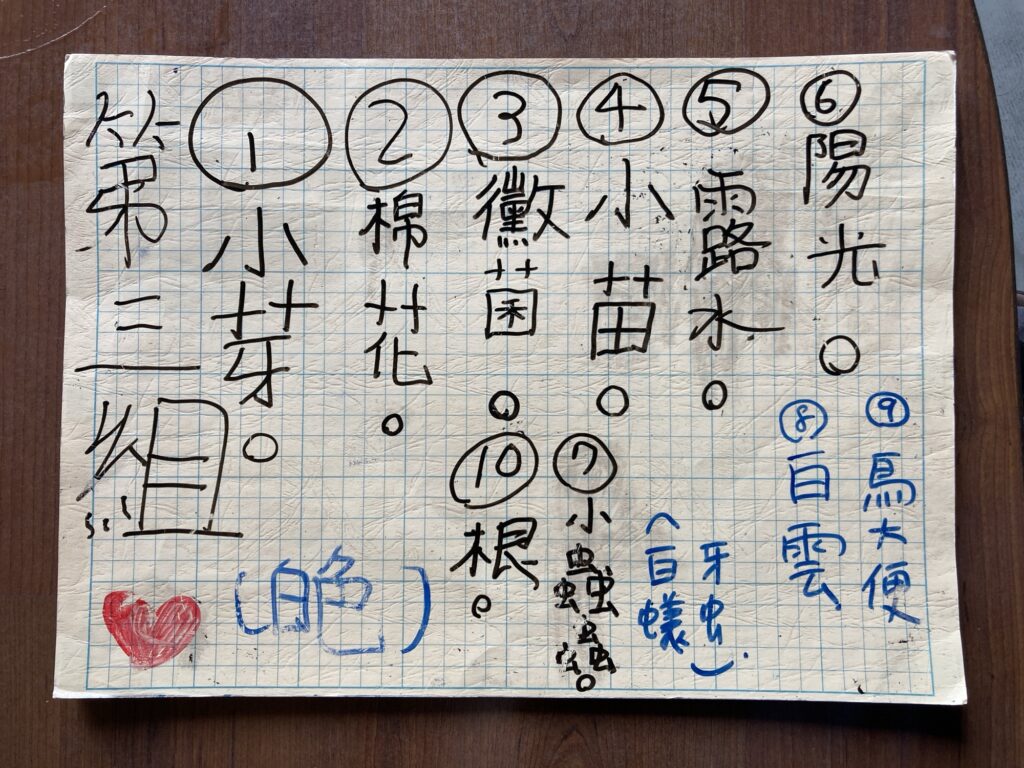 第三組
①小芽。
②棉花。
③黴菌。
④小苗。
⑤露水。
⑥陽光。
⑦小蟲蟲。
(白蟻
牙虫).
⑧白雲
⑨鳥大便
⑩根。
(白色)